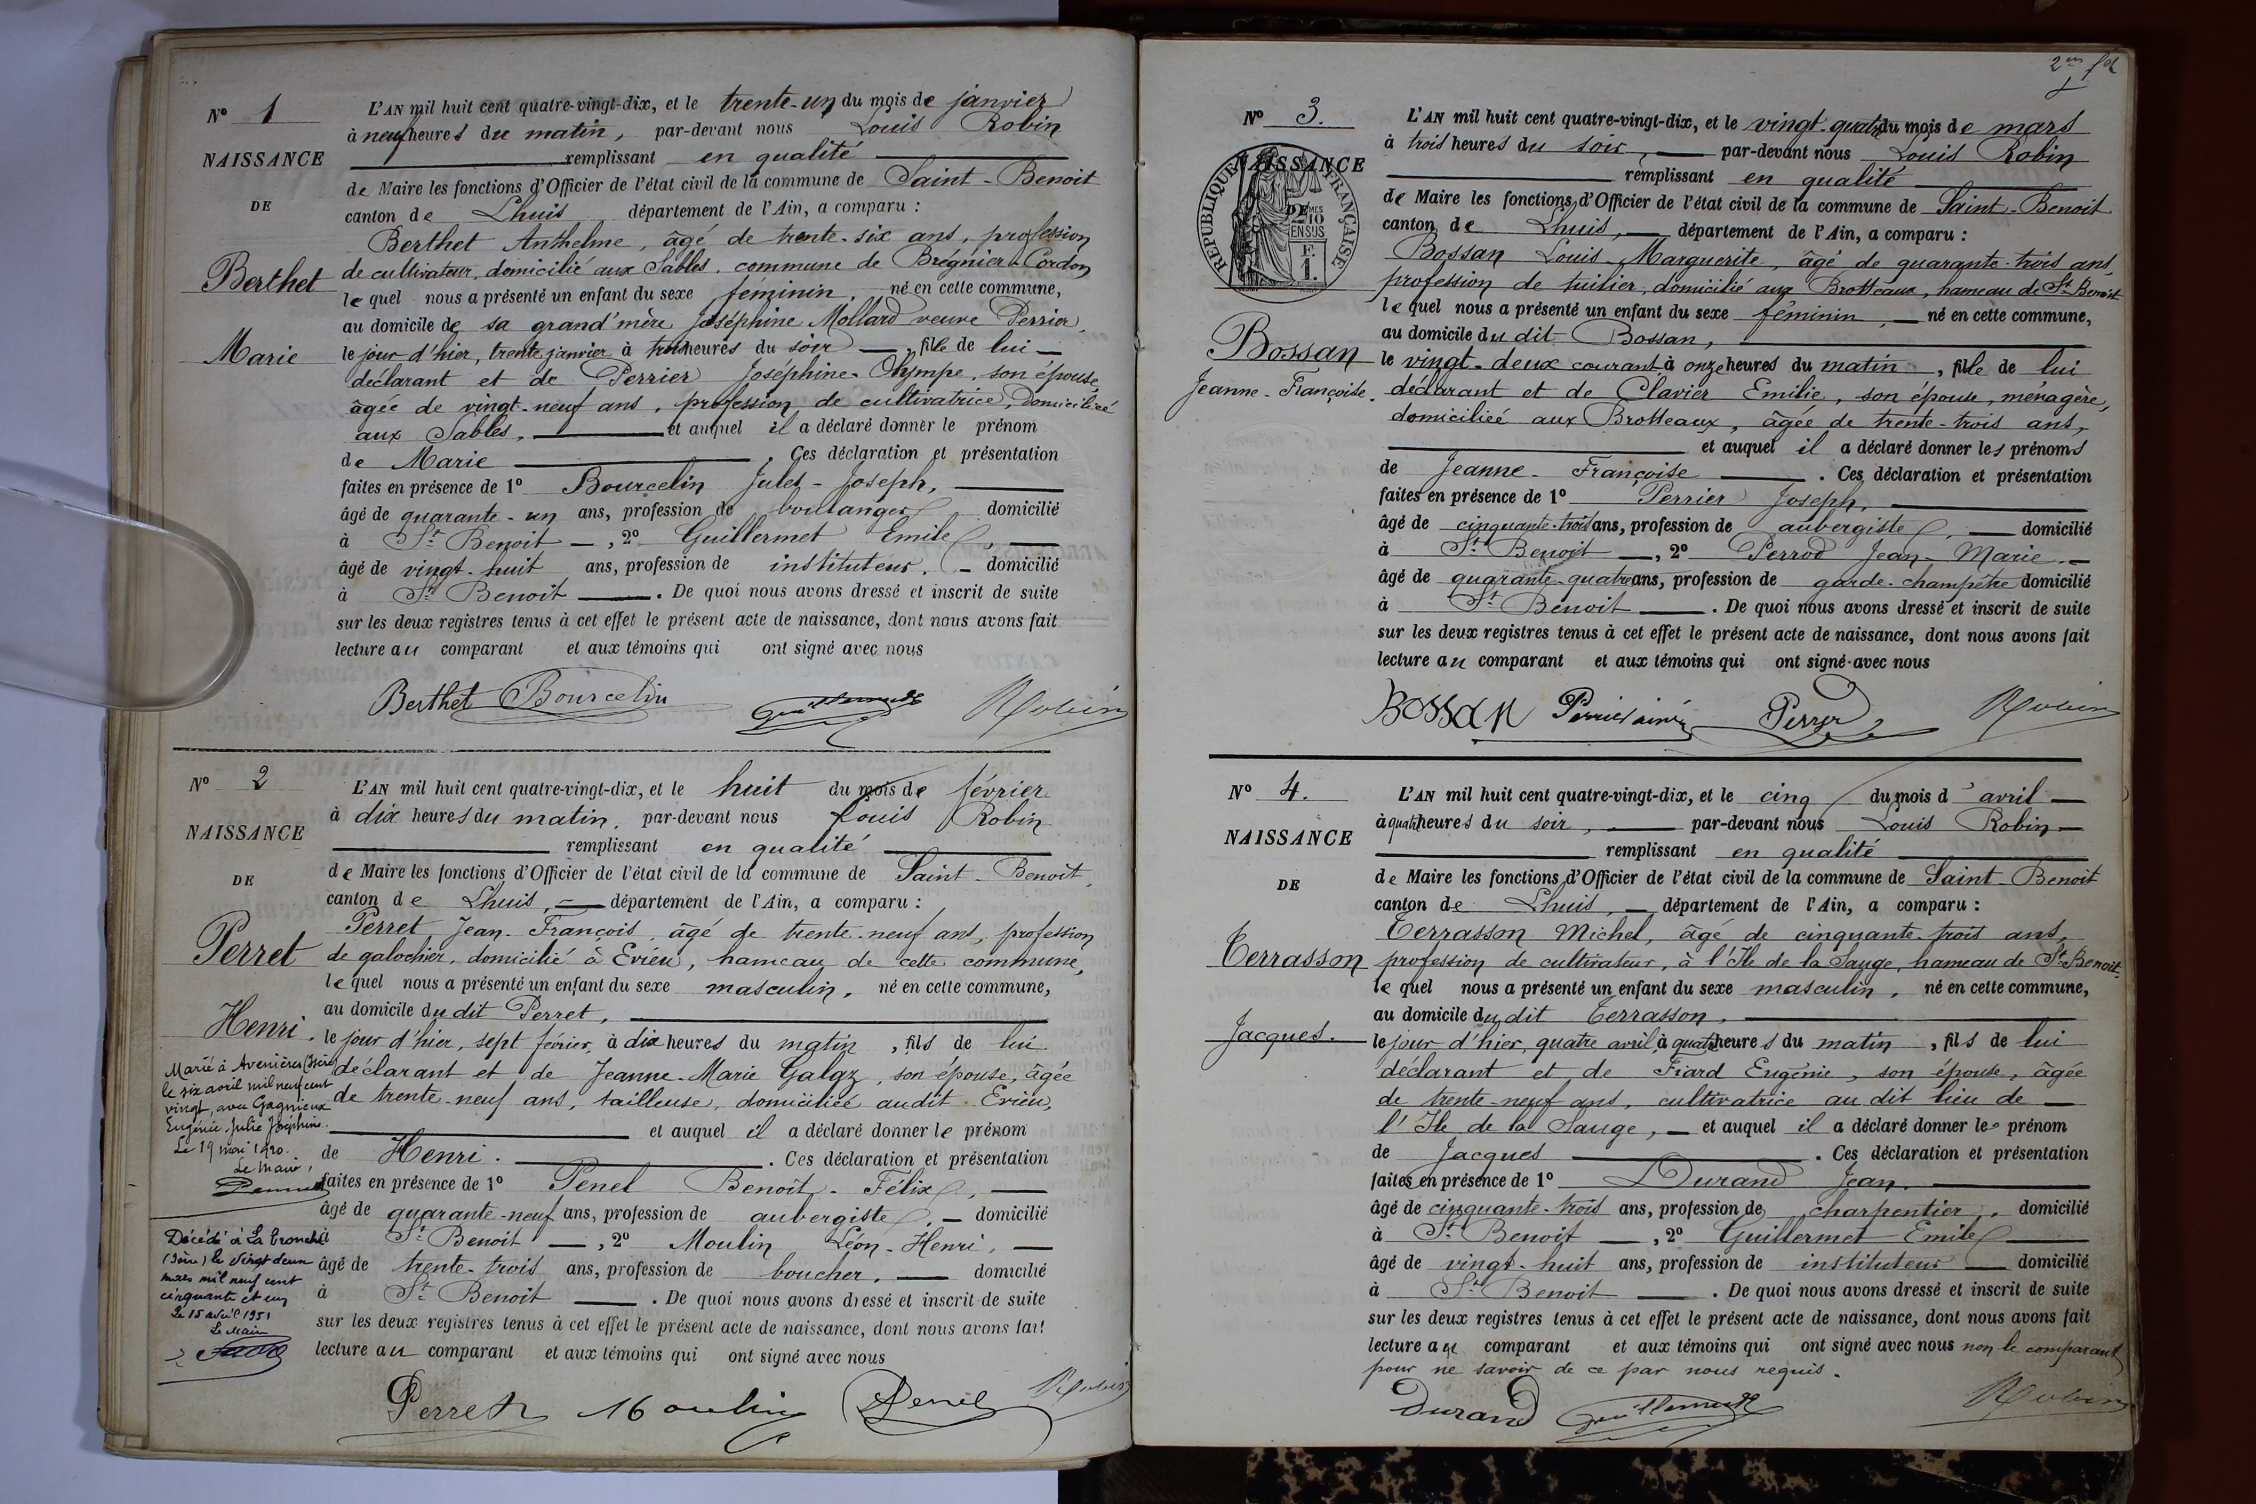 N° 1
NAISSANCE
DE
Berthet
Marie
L'AN mil huit cent quatre-vingt-dix, et le trente-un du mois de janvier
à neuf heures du matin, par-devant nous Louis Robin
remplissant en qualité
de Maire les fonctions d'Officier de l'état civil de la commune de Saint-Benoit
canton de Lhuis, département de l'Ain, a comparu :
Berthet Anthelme, âgé de trente-six ans, profession
de cultivateur, domicilié aux Sables, commune de Brégnier-Cordon
lequel nous a présenté un enfant du sexe féminin, né en cette commune,
au domicile de sa grand'mère Joséphine Mollard veuve Perrier,
le jour d'hier, trente janvier à trois heures du soir, fille de lui
déclarant et de Perrier Joséphine-Olympe, son épouse,
âgée de vingt-neuf ans, profession de cultivatrice, domiciliée
aux Sables, et auquel il a déclaré donner le prénom
de Marie. Ces déclaration et présentation
faites en présence de 1° Bourcelin Jules-Joseph,
âgé de quarante-un ans, profession de boulanger domicilié
à St Benoit, 2° Guillermet Emile,
âgé de vingt-huit ans, profession de instituteur, domicilié
à St Benoit. De quoi nous avons dressé et inscrit de suite
sur les deux registres tenus à cet effet le présent acte de naissance, dont nous avons fait
lecture au comparant et aux témoins qui ont signé avec nous
Berthet Bourcelin Guillermet Robin
N° 2
NAISSANCE
DE
Perret
Henri.
Marié à Avenières (Isère)
le six avril mil neuf cent
vingt, avec Gagnieux
Eugénie Julie Joséphine.
Le 19 mai 1920.
Le Maire,
Décédé à La Tronche
(Isère) le vingt deux
mars mil neuf cent
cinquante et un
Le 15 avril 1951
Le Maire
L'AN mil huit cent quatre-vingt-dix, et le huit du mois de février
à dix heures du matin, par-devant nous Louis Robin
remplissant en qualité
de Maire les fonctions d'Officier de l'état civil de la commune de Saint-Benoit,
canton de Lhuis, département de l'Ain, a comparu :
Perret Jean-François âgé de trente-neuf ans, profession
de galochier, domicilié à Evieu, hameau de cette commune,
lequel nous a présenté un enfant du sexe masculin, né en cette commune,
au domicile du dit Perret,
le jour d'hier, sept février, à dix heures du matin, fils de lui
déclarant et de Jeanne-Marie Galgz, son épouse, âgée
de trente-neuf ans, tailleuse, domiciliée audit Evieu,
et auquel il a déclaré donner le prénom
de Henri. Ces déclaration et présentation
faites en présence de 1° Penel Benoit-Félix,
âgé de quarante-neuf ans, profession de aubergiste, domicilié
à St Benoit, 2° Moulin Léon-Henri,
âgé de trente-trois ans, profession de boucher, domicilié
à St Benoit. De quoi nous avons dressé et inscrit de suite
sur les deux registres tenus à cet effet le présent acte de naissance, dont nous avons fait
lecture au comparant et aux témoins qui ont signé avec nous
Perret Moulin Penel Robin
N° 3.
NAISSANCE
DE
RÉPUBLIQUE FRANÇAISE
2 MES
10
EN SUS
F.
1.
Bossan
Jeanne-Françoise.
L'AN mil huit cent quatre-vingt-dix, et le vingt-quatre du mois de mars
à trois heures du soir, par-devant nous Louis Robin
remplissant en qualité
de Maire les fonctions d'Officier de l'état civil de la commune de Saint-Benoit
canton de Lhuis, département de l'Ain, a comparu :
Bossan Louis-Marguerite, âgé de quarante-trois ans,
profession de tuilier, domicilié aux Brotteaux, hameau de St Benoit
lequel nous a présenté un enfant du sexe féminin, né en cette commune,
au domicile du dit Bossan,
le vingt-deux courant à onze heures du matin, fille de lui
déclarant et de Clavier Emilie, son épouse, ménagère,
domiciliée aux Brotteaux, âgée de trente-trois ans,
et auquel il a déclaré donner les prénoms
de Jeanne-Françoise. Ces déclaration et présentation
faites en présence de 1° Perrier Joseph,
âgé de cinquante-trois ans, profession de aubergiste, domicilié
à St Benoit, 2° Perrod Jean-Marie,
âgé de quarante-quatre ans, profession de garde-champêtre domicilié
à St Benoit. De quoi nous avons dressé et inscrit de suite
sur les deux registres tenus à cet effet le présent acte de naissance, dont nous avons fait
lecture au comparant et aux témoins qui ont signé avec nous
Bossan Perrier ainé Perrod Robin
N° 4.
NAISSANCE
DE
Terrasson
Jacques.
L'AN mil huit cent quatre-vingt-dix, et le cinq du mois d'avril
à quatre heures du soir, par-devant nous Louis Robin
remplissant en qualité
de Maire les fonctions d'Officier de l'état civil de la commune de Saint-Benoit
canton de Lhuis, département de l'Ain, a comparu :
Terrasson Michel, âgé de cinquante-trois ans,
profession de cultivateur, à l'Ile de la Sauge, hameau de St Benoit.
lequel nous a présenté un enfant du sexe masculin, né en cette commune,
au domicile du dit Terrasson,
le jour d'hier, quatre avril à quatre heures du matin, fils de lui
déclarant et de Fiard Eugénie, son épouse, âgée
de trente-neuf ans, cultivatrice au dit lieu de
l'Ile de la Sauge, et auquel il a déclaré donner le prénom
de Jacques. Ces déclaration et présentation
faites en présence de 1° Durand Jean,
âgé de cinquante-trois ans, profession de charpentier, domicilié
à St Benoit, 2° Guillermet Emile
âgé de vingt-huit ans, profession de instituteur domicilié
à St Benoit. De quoi nous avons dressé et inscrit de suite
sur les deux registres tenus à cet effet le présent acte de naissance, dont nous avons fait
lecture au comparant et aux témoins qui ont signé avec nous non le comparant
pour ne savoir de ce par nous requis.
Durand Guillermet Robin